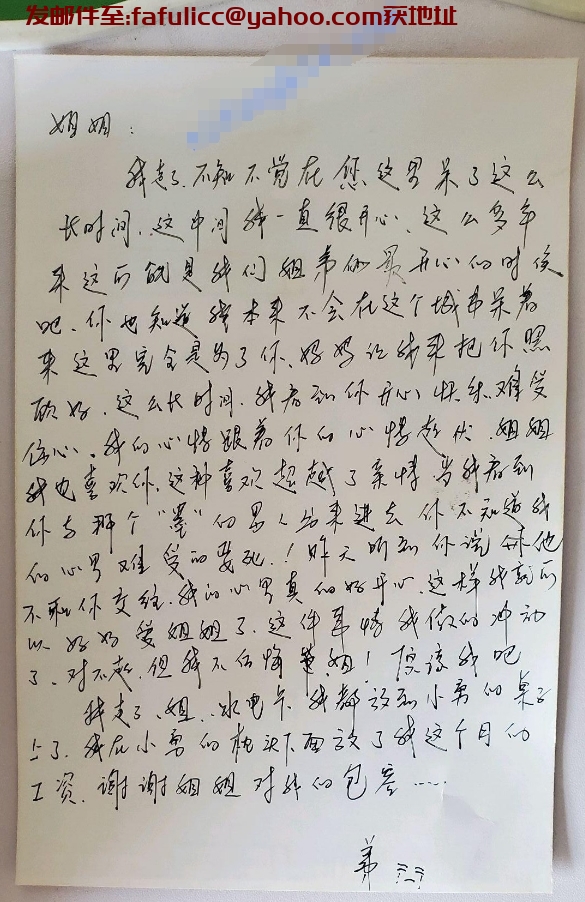 发邮件至:fafulicc@yahoo.com获地址
姐姐：
我走了.不知不觉在您这里呆了这么
长时间.这中间我一直很开心.这么多年
来这可能是我们姐弟俩最开心的时候
吧.你也知道我本来不会在这个城市呆着
来这里完全是为了你.妈妈让我来把你照
顾好.这么长时间.我看到你开心快乐.难受
伤心.我的心情跟着你的心情起伏.姐姐
我也喜欢你.这种喜欢超越了亲情.当我看到
你与那个“墨”的男人出来进去你不知道我
的心里难受的要死.！昨天听到你说他
不和你交往.我的心里真的好开心.这样我就可
以好好爱姐姐了.这件事情我做的冲动
了.对不起.但我不后悔姐！原谅我吧
我走了.姐.水电卡我都放到小勇的桌子
上了.我在小勇的枕头下面放了我这个月的
工资.谢谢姐姐对我的包容……
弟